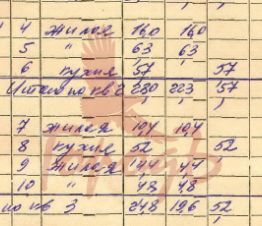 4 жилая 16,0 16,0
5 " 6,3 6,3
6 кухня 5,7 5,7
Итого по кв 2 28,0 22,3 5,7
7 жилая 10,4 10,4
8 кухня 5,2 5,2
9 жилая 4,4 4,4
10 " 4,8 4,8
по кв 3 24,8 19,6 5,2